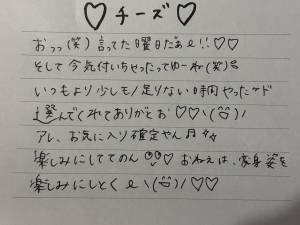 ♡チーズ♡
おっっ(笑)言ってた曜日だぁe!!♡♡
そして今気付いちゃったってゆーね(笑)
いつもより少しモノ足りない時間やったケド
選んでくれてありがとお♡♡\(^^)/
アレ、お気に入り確定やん♫♪
楽しみにしててのん♡♡ おねぇは、変身姿を
楽しみにしとくe\(^^)/♡♡